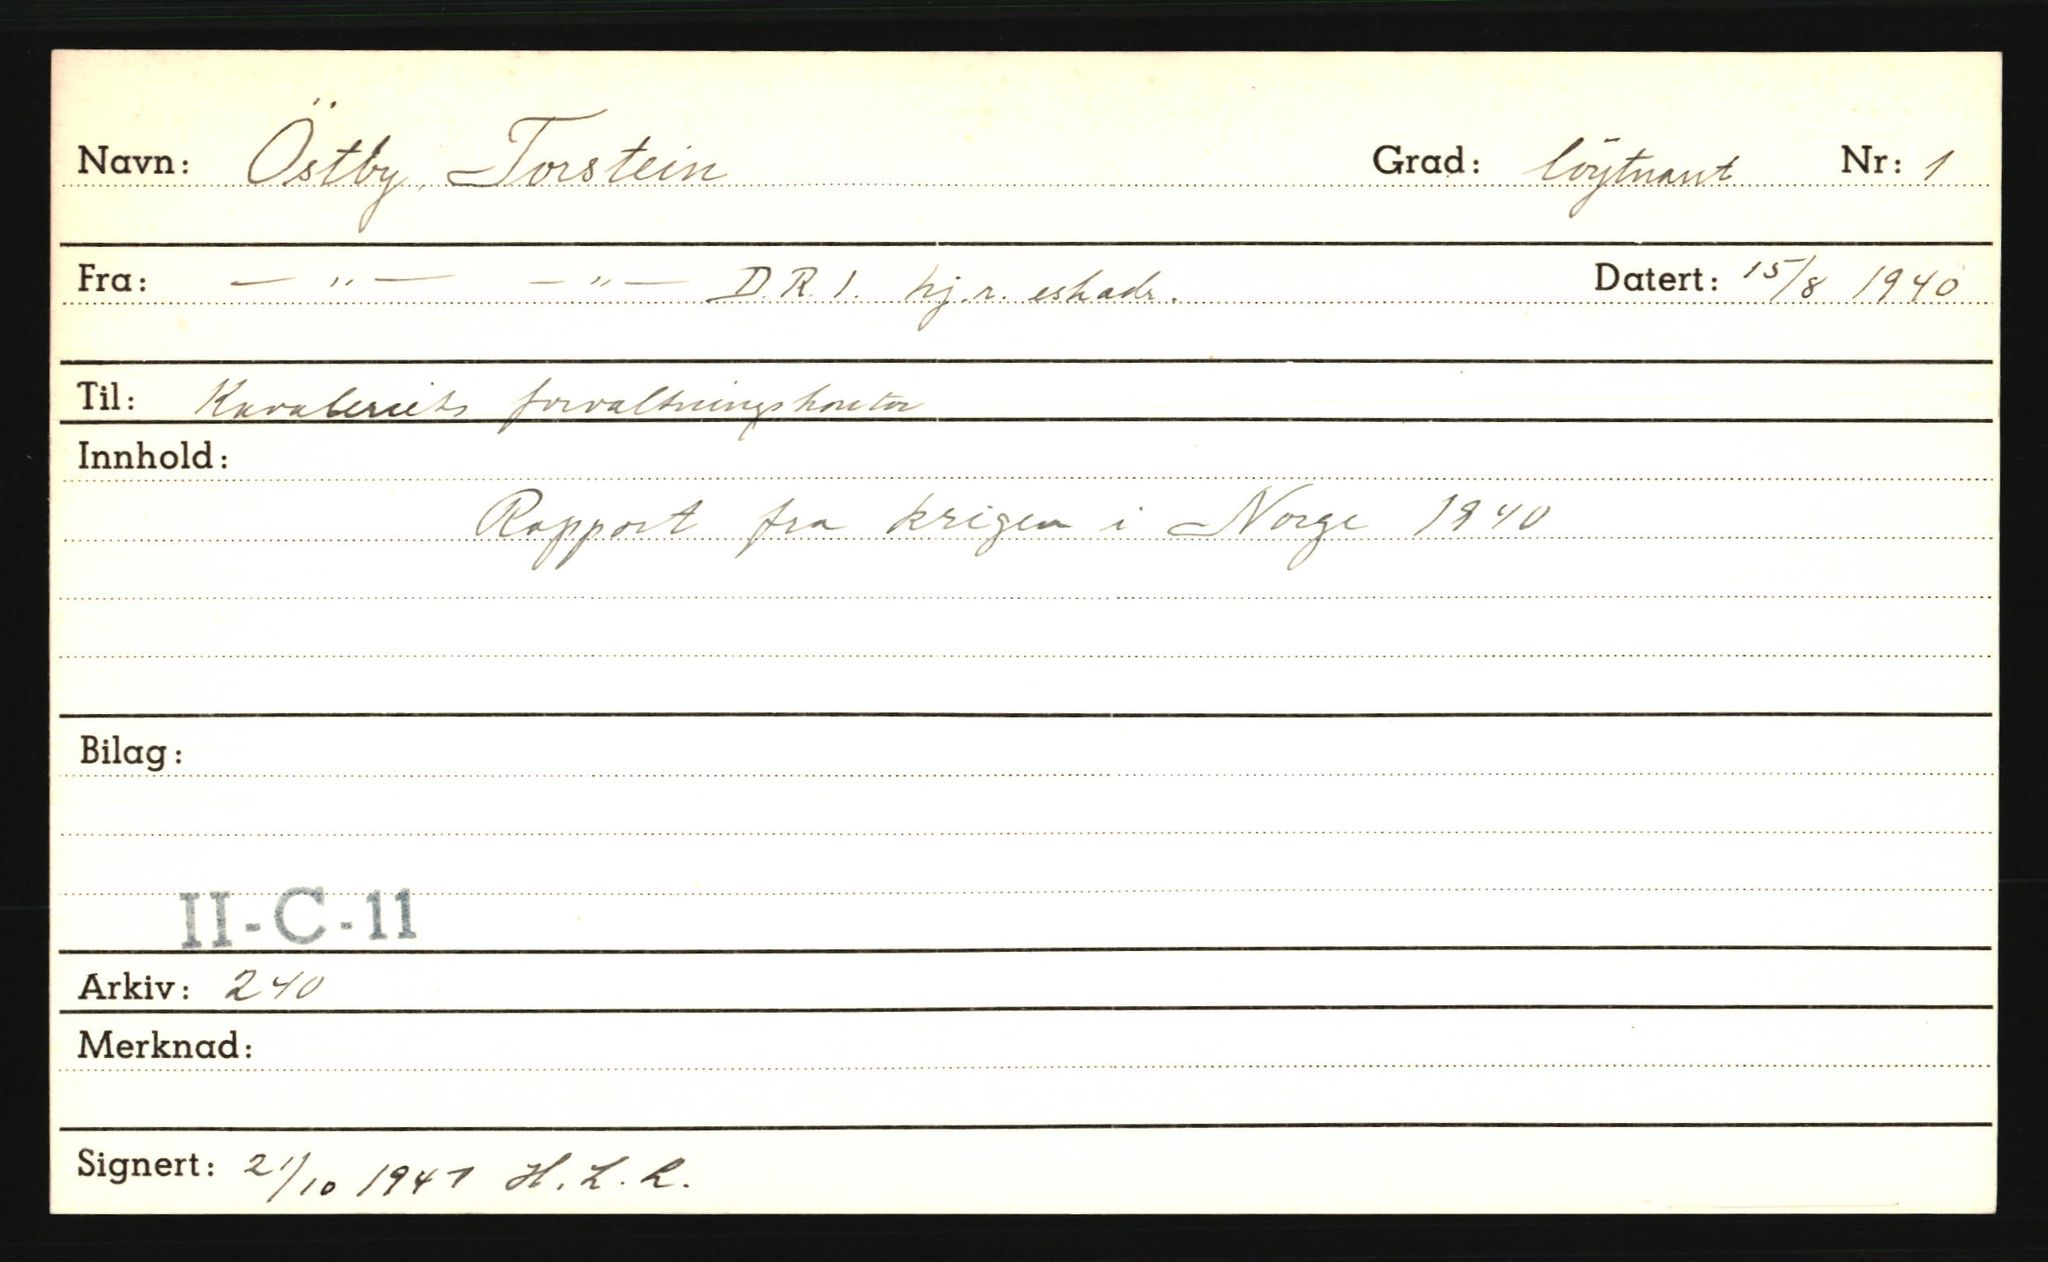 Navn: Östby, Torstein Grad: löytnant Nr: 1
Fra: — " — — " — D.R.1. hj.r. eskadr. Datert: 15/8 1940
Til: Kavaleriets forvaltningskontor
Innhold:
Rapport fra krigen i Norge 1940
Bilag:
II-C-11
Arkiv: 240
Merknad:
Signert: 21/10 1947 H.L.L.